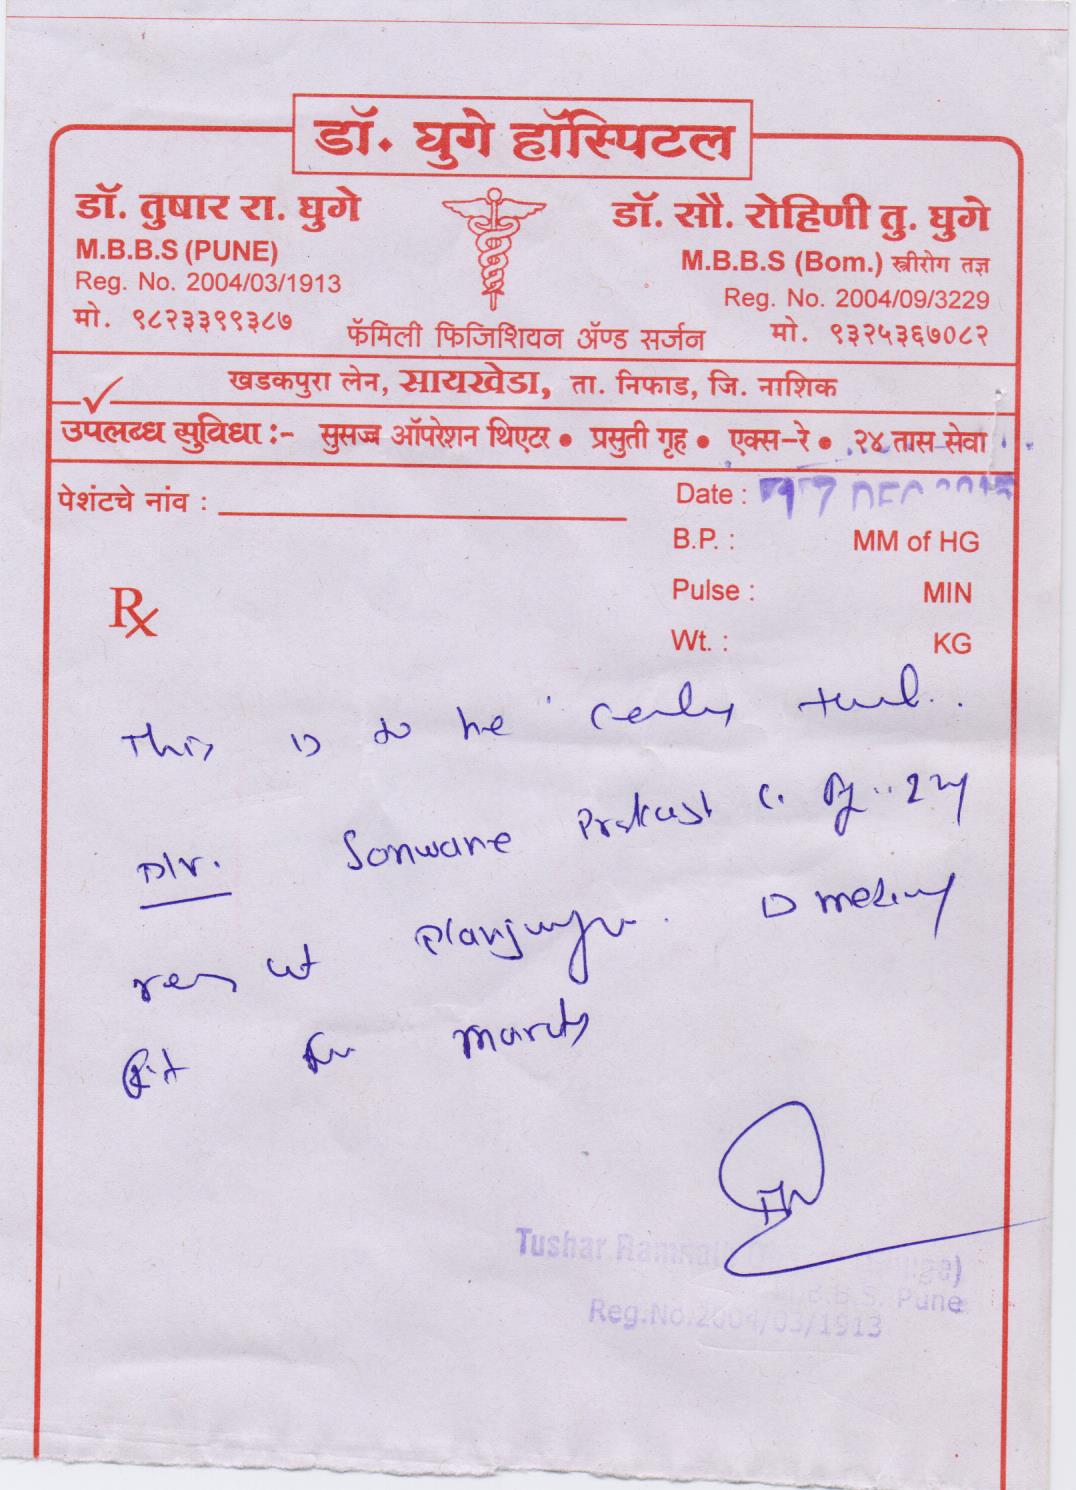 डॉ. घुगे हॉस्पिटल
डॉ. तुषार रा. घुगे
M.B.B.S (PUNE)
Reg. No. 2004/03/1913
मो. ९८२३३९९३८७
डॉ. सौ. रोहिणी तु. घुगे
M.B.B.S (Bom.) स्त्रीरोग तज्ञ
Reg. No. 2004/09/3229
मो. ९३२५३६७०८२
फॅमिली फिजिशियन ॲण्ड सर्जन
खडकपुरा लेन, सायखेडा, ता. निफाड, जि. नाशिक
उपलब्ध सुविधा :- सुसज्ज ऑपरेशन थिएटर • प्रसुती गृह • एक्स-रे • २४ तास सेवा
पेशंटचे नांव :
Date : 17 DEC
B.P. : MM of HG
Pulse : MIN
Wt. : KG
Rx
This is to
Sonwane Prakash
at
fit for
Tushar
M.B.B.S. Pune
Reg.No.2004/03/1913